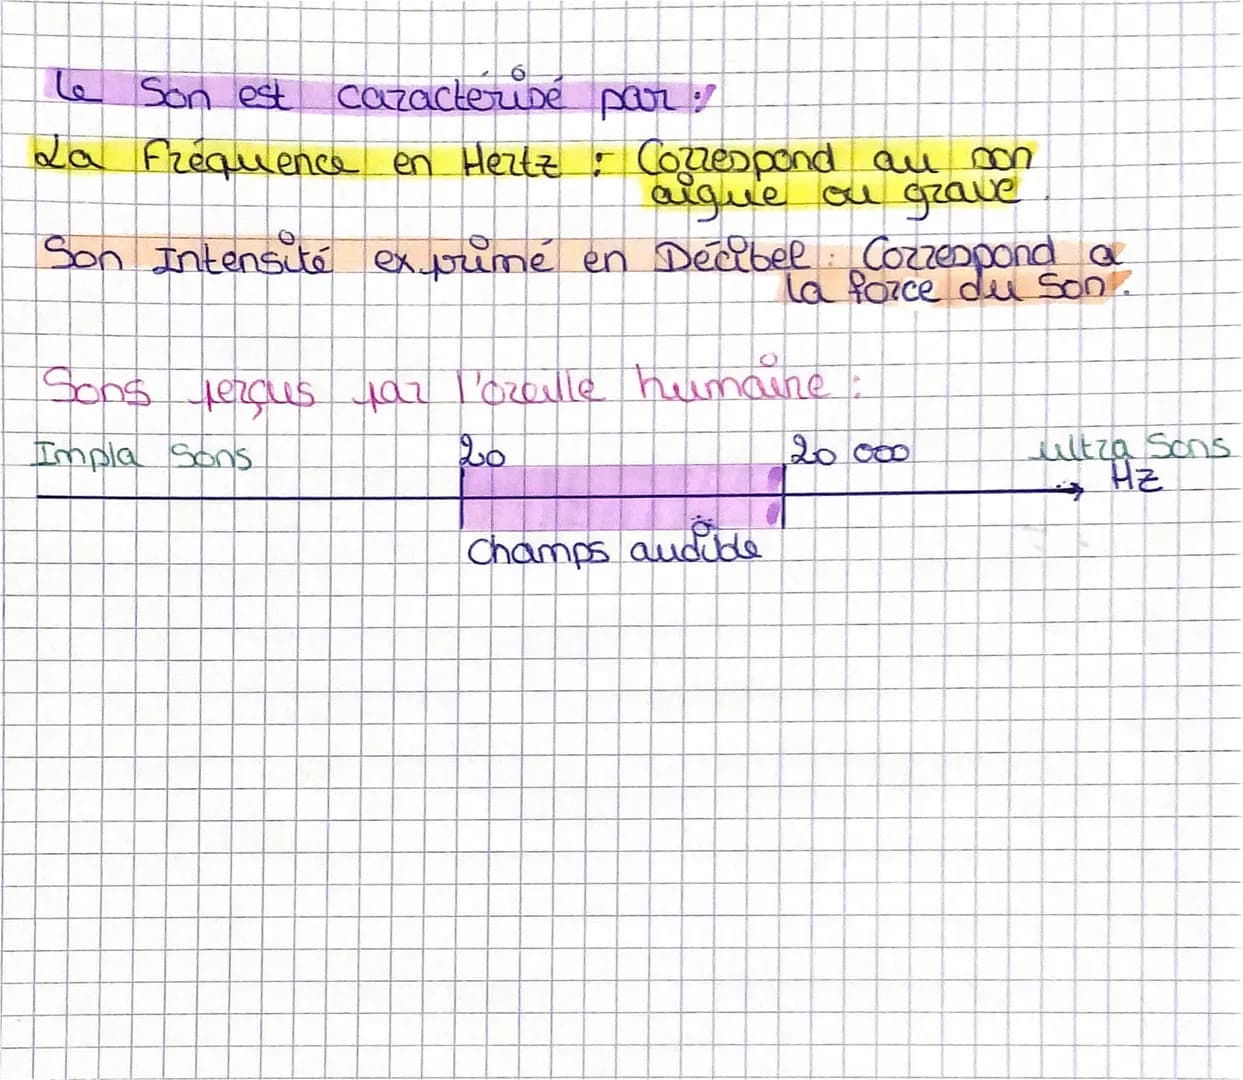 Le Son est caractérisé par :
La Fréquence en Hertz : Correspond au son
aigue ou grave.
Son Intensité exprimé en Décibel : Correspond a
la force du Son.
Sons perçus par l'oreille humaine :
Impla Sons 20 20 000 ultra Sons
Hz
Champs audible